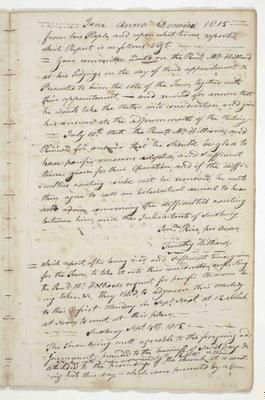 June Anno Domini 1815
from sd People and upon what time, reported
which Report is as follows (viz)
Your committee waited on the Revd. Mr. Hilliard
at his lodgings on the day of their appointment &
Presented to him the vote of the Town together with
their appointment and moved for answer that
he would take the matter into consideration and give
his answer at the adjournment of the Meeting
July 10th Mett the Revd. Mr. Hilliard, and
Received for answer that he should be glad to
have pacific measures adopted, and sufficient
time given for their Operation and if the diffi-
culties existing could not be removed he would
then agree to call an Eclesiastical council to hear
and advise concerning the difficulties existing
between him and the Inhabitants of Sudbury
Rice
Timothy Hilliard
which report after being read and sufficient time given
for the Town to take it into their consideration respecting
the Revd. Mr. Hilliards request for pacific measures
being taken &c they Voted to adjourn this Meeting
to the first Monday in Sept. Next at 12 oClock
at Noon to meet at this place.
Sudbury Sept. 4th 1815
The Town being mett agreeable to the foregoing ad-
journment proceeded to the business of said day &
attended to the proceedings of the church at a meet-
ing held this day which were presented by a com